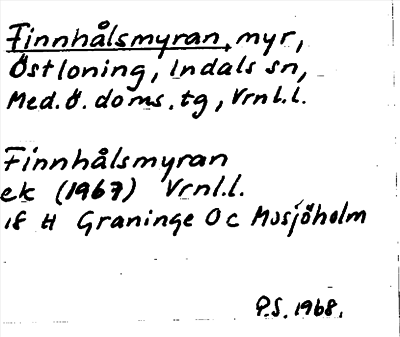 Finnhålsmyran, myr,
Östloning, Indals sn,
Med.Ö. doms.tg, Vrnl.l.
Finnhålsmyran
ek (1967) Vrnl.l.
18 H Graninge Oc Mosjöholm
P.S. 1968.